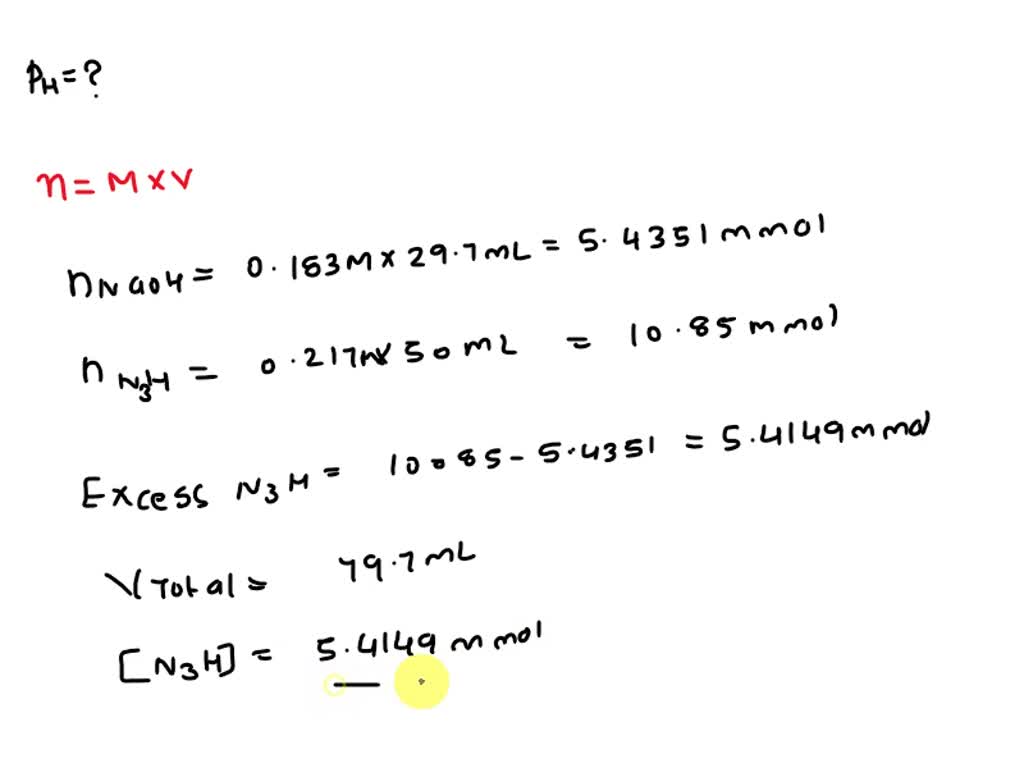 PH=?
n = M×V
nNaOH = 0.183M × 29.7mL = 5.4351 mmol
nN3H = 0.217M × 50 mL = 10.85 mmol
Excess N3H = 10.85 - 5.4351 = 5.4149 mmol
VTotal = 79.7mL
[N3H] = 5.4149 mmol